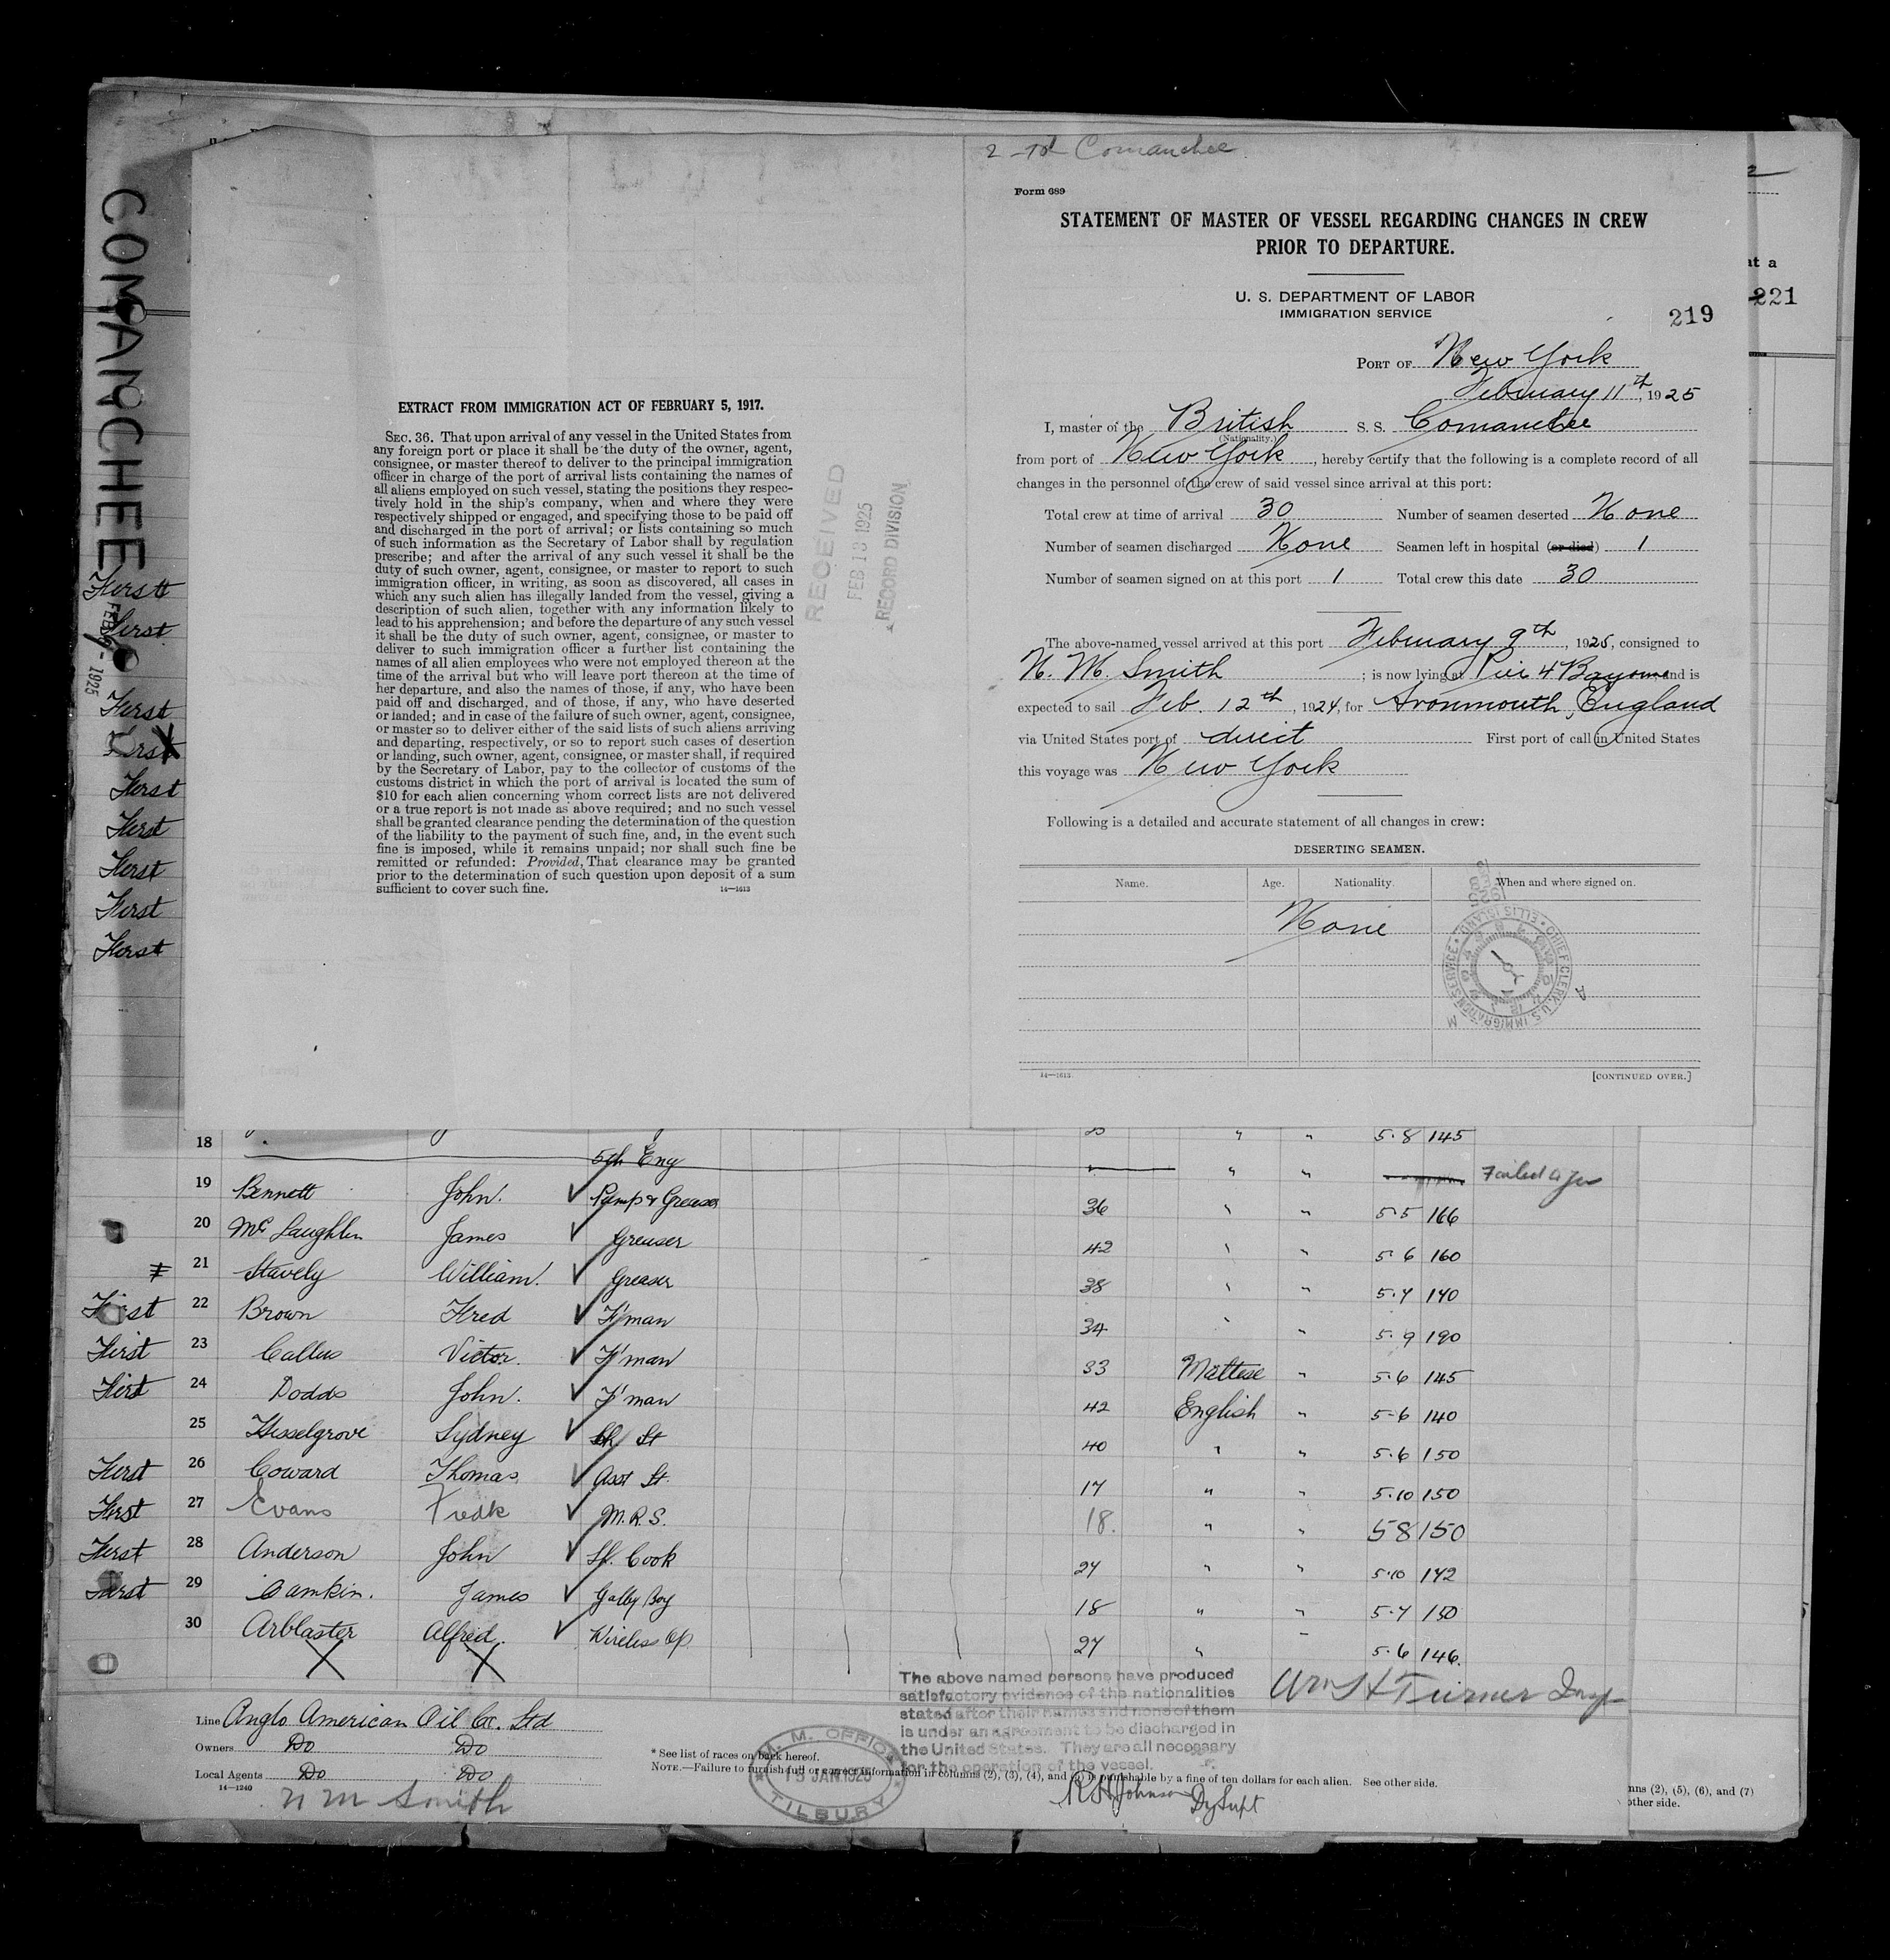 COMANCHEE
FEB 9 - 1925
First
First
First
First
First
First
First
First
First
EXTRACT FROM IMMIGRATION ACT OF FEBRUARY 5, 1917.
SEC. 36. That upon arrival of any vessel in the United States from
any foreign port or place it shall be the duty of the owner, agent,
consignee, or master thereof to deliver to the principal immigration
officer in charge of the port of arrival lists containing the names of
all aliens employed on such vessel, stating the positions they respec-
tively hold in the ship's company, when and where they were
respectively shipped or engaged, and specifying those to be paid off
and discharged in the port of arrival; or lists containing so much
of such information as the Secretary of Labor shall by regulation
prescribe; and after the arrival of any such vessel it shall be the
duty of such owner, agent, consignee, or master to report to such
immigration officer, in writing, as soon as discovered, all cases in
which any such alien has illegally landed from the vessel, giving a
description of such alien, together with any information likely to
lead to his apprehension; and before the departure of any such vessel
it shall be the duty of such owner, agent, consignee, or master to
deliver to such immigration officer a further list containing the
names of all alien employees who were not employed thereon at the
time of the arrival but who will leave port thereon at the time of
her departure, and also the names of those, if any, who have been
paid off and discharged, and of those, if any, who have deserted
or landed; and in case of the failure of such owner, agent, consignee,
or master so to deliver either of the said lists of such aliens arriving
and departing, respectively, or so to report such cases of desertion
or landing, such owner, agent, consignee, or master shall, if required
by the Secretary of Labor, pay to the collector of customs of the
customs district in which the port of arrival is located the sum of
$10 for each alien concerning whom correct lists are not delivered
or a true report is not made as above required; and no such vessel
shall be granted clearance pending the determination of the question
of the liability to the payment of such fine, and, in the event such
fine is imposed, while it remains unpaid; nor shall such fine be
remitted or refunded: Provided, That clearance may be granted
prior to the determination of such question upon deposit of a sum
sufficient to cover such fine. 14—1613
RECEIVED
FEB 13 1925
RECORD DIVISION
Comanchee
Form 689
STATEMENT OF MASTER OF VESSEL REGARDING CHANGES IN CREW
PRIOR TO DEPARTURE.
U. S. DEPARTMENT OF LABOR
IMMIGRATION SERVICE
219
PORT OF New York
February 11th, 1925
I, master of the British S. S. Comanchee
(Nationality.)
from port of New York, hereby certify that the following is a complete record of all
changes in the personnel of the crew of said vessel since arrival at this port:
Total crew at time of arrival 30 Number of seamen deserted None
Number of seamen discharged None Seamen left in hospital (or died) 1
Number of seamen signed on at this port 1 Total crew this date 30
The above-named vessel arrived at this port February 9th, 1925, consigned to
N. M. Smith; is now lying at Pier 4 Bayonne and is
expected to sail Feb. 12th, 1924, for Avonmouth, England
via United States port of direct First port of call in United States
this voyage was New York
Following is a detailed and accurate statement of all changes in crew:
DESERTING SEAMEN.
Name. Age. Nationality. When and where signed on.
None
CHIEF CLERK, U.S. IMMIGRATION SERVICE ELLIS ISLAND
14—1613 [CONTINUED OVER.]
at a
221
18 " " 5.8 145
5th Eng " " Failed to Join
19 Bennett John. Pump & Greaser 36 " " 5.5 166
20 McLaughlin James Greaser 42 " " 5 6 160
21 Stavely William. Greaser 38 " " 5.7 140
First 22 Brown Fred F'man 34 " " 5.9 190
First 23 Callus Victor. F'man 33 Maltese " 5.6 145
First 24 Dodds John. F'man 42 English " 5-6 140
25 Hesselgrove Sydney Ch St 40 " " 5.6 150
First 26 Coward Thomas Asst St. 17 " " 5.10 150
First 27 Evans Fredk M.R.S. 18. " " 58 150
First 28 Anderson John Sh. Cook 27 " " 5.10 142
First 29 James Galley Boy 18 " " 5.7 150
30 Arblaster Alfred. Wireless Op. 27 " " 5.6 146.
The above named persons have produced
satisfactory evidence of the nationalities
stated after their names and none of them
is under an agreement to be discharged in
the United States. They are all necessary
for the operation of the vessel.
Wm H Turner Insp
R H Johnson
Dy Supt
Line Anglo American Oil Co. Ltd
Owners Do Do
Local Agents Do Do
14—1240
N M Smith
M. M. OFFICE
15 JAN. 1925
TILBURY
* See list of races on back hereof.
NOTE.—Failure to furnish full or correct information in columns (2), (3), (4), and is punishable by a fine of ten dollars for each alien. See other side.
mns (2), (5), (6), and (7)
other side.